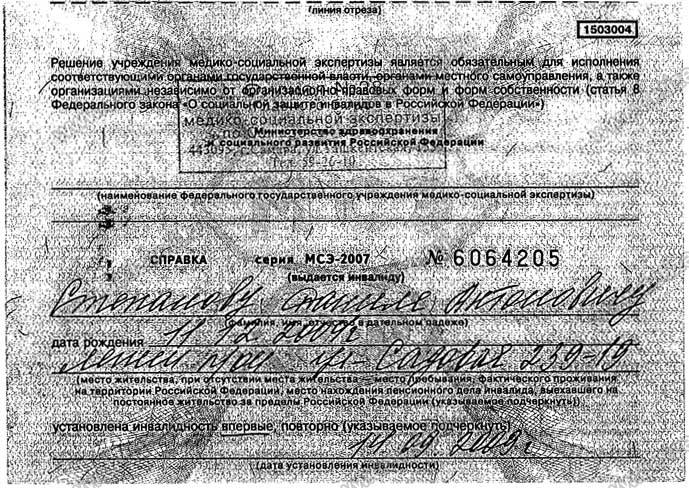 (линия отреза)
1503004
Решение учреждения медико-социальной экспертизы является обязательным для исполнения
соответствующими органами государственной власти, органами местного самоуправления, а также
организациями независимо от организационно-правовых форм и форм собственности (статья 8
Федерального закона «О социальной защите инвалидов в Российской Федерации»)
медико-социальной экспертизы
Министерство здравоохранения
и социального развития Российской Федерации
443095, г. Самара, ул. Ташкентская,
Тел. 59-20-10
(наименование федерального государственного учреждения медико-социальной экспертизы)
СПРАВКА серия МСЭ-2007 № 6064205
(выдается инвалиду)
Степанову Антоновичу
(фамилия, имя, отчество в дательном падеже)
дата рождения 11
ул. Садовая 239-19
(место жительства, при отсутствии места жительства — место пребывания, фактического проживания
на территории Российской Федерации, место нахождения пенсионного дела инвалида, выехавшего на
постоянное жительство за пределы Российской Федерации (указываемое подчеркнуть))
установлена инвалидность впервые, повторно (указываемое подчеркнуть)
09. 2009г
(дата установления инвалидности)